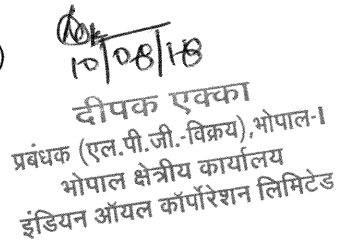 10/08/18
दीपक एक्का
प्रबंधक (एल.पी.जी.-विक्रय),भोपाल-I
भोपाल क्षेत्रीय कार्यालय
इंडियन ऑयल कॉर्पोरेशन लिमिटेड